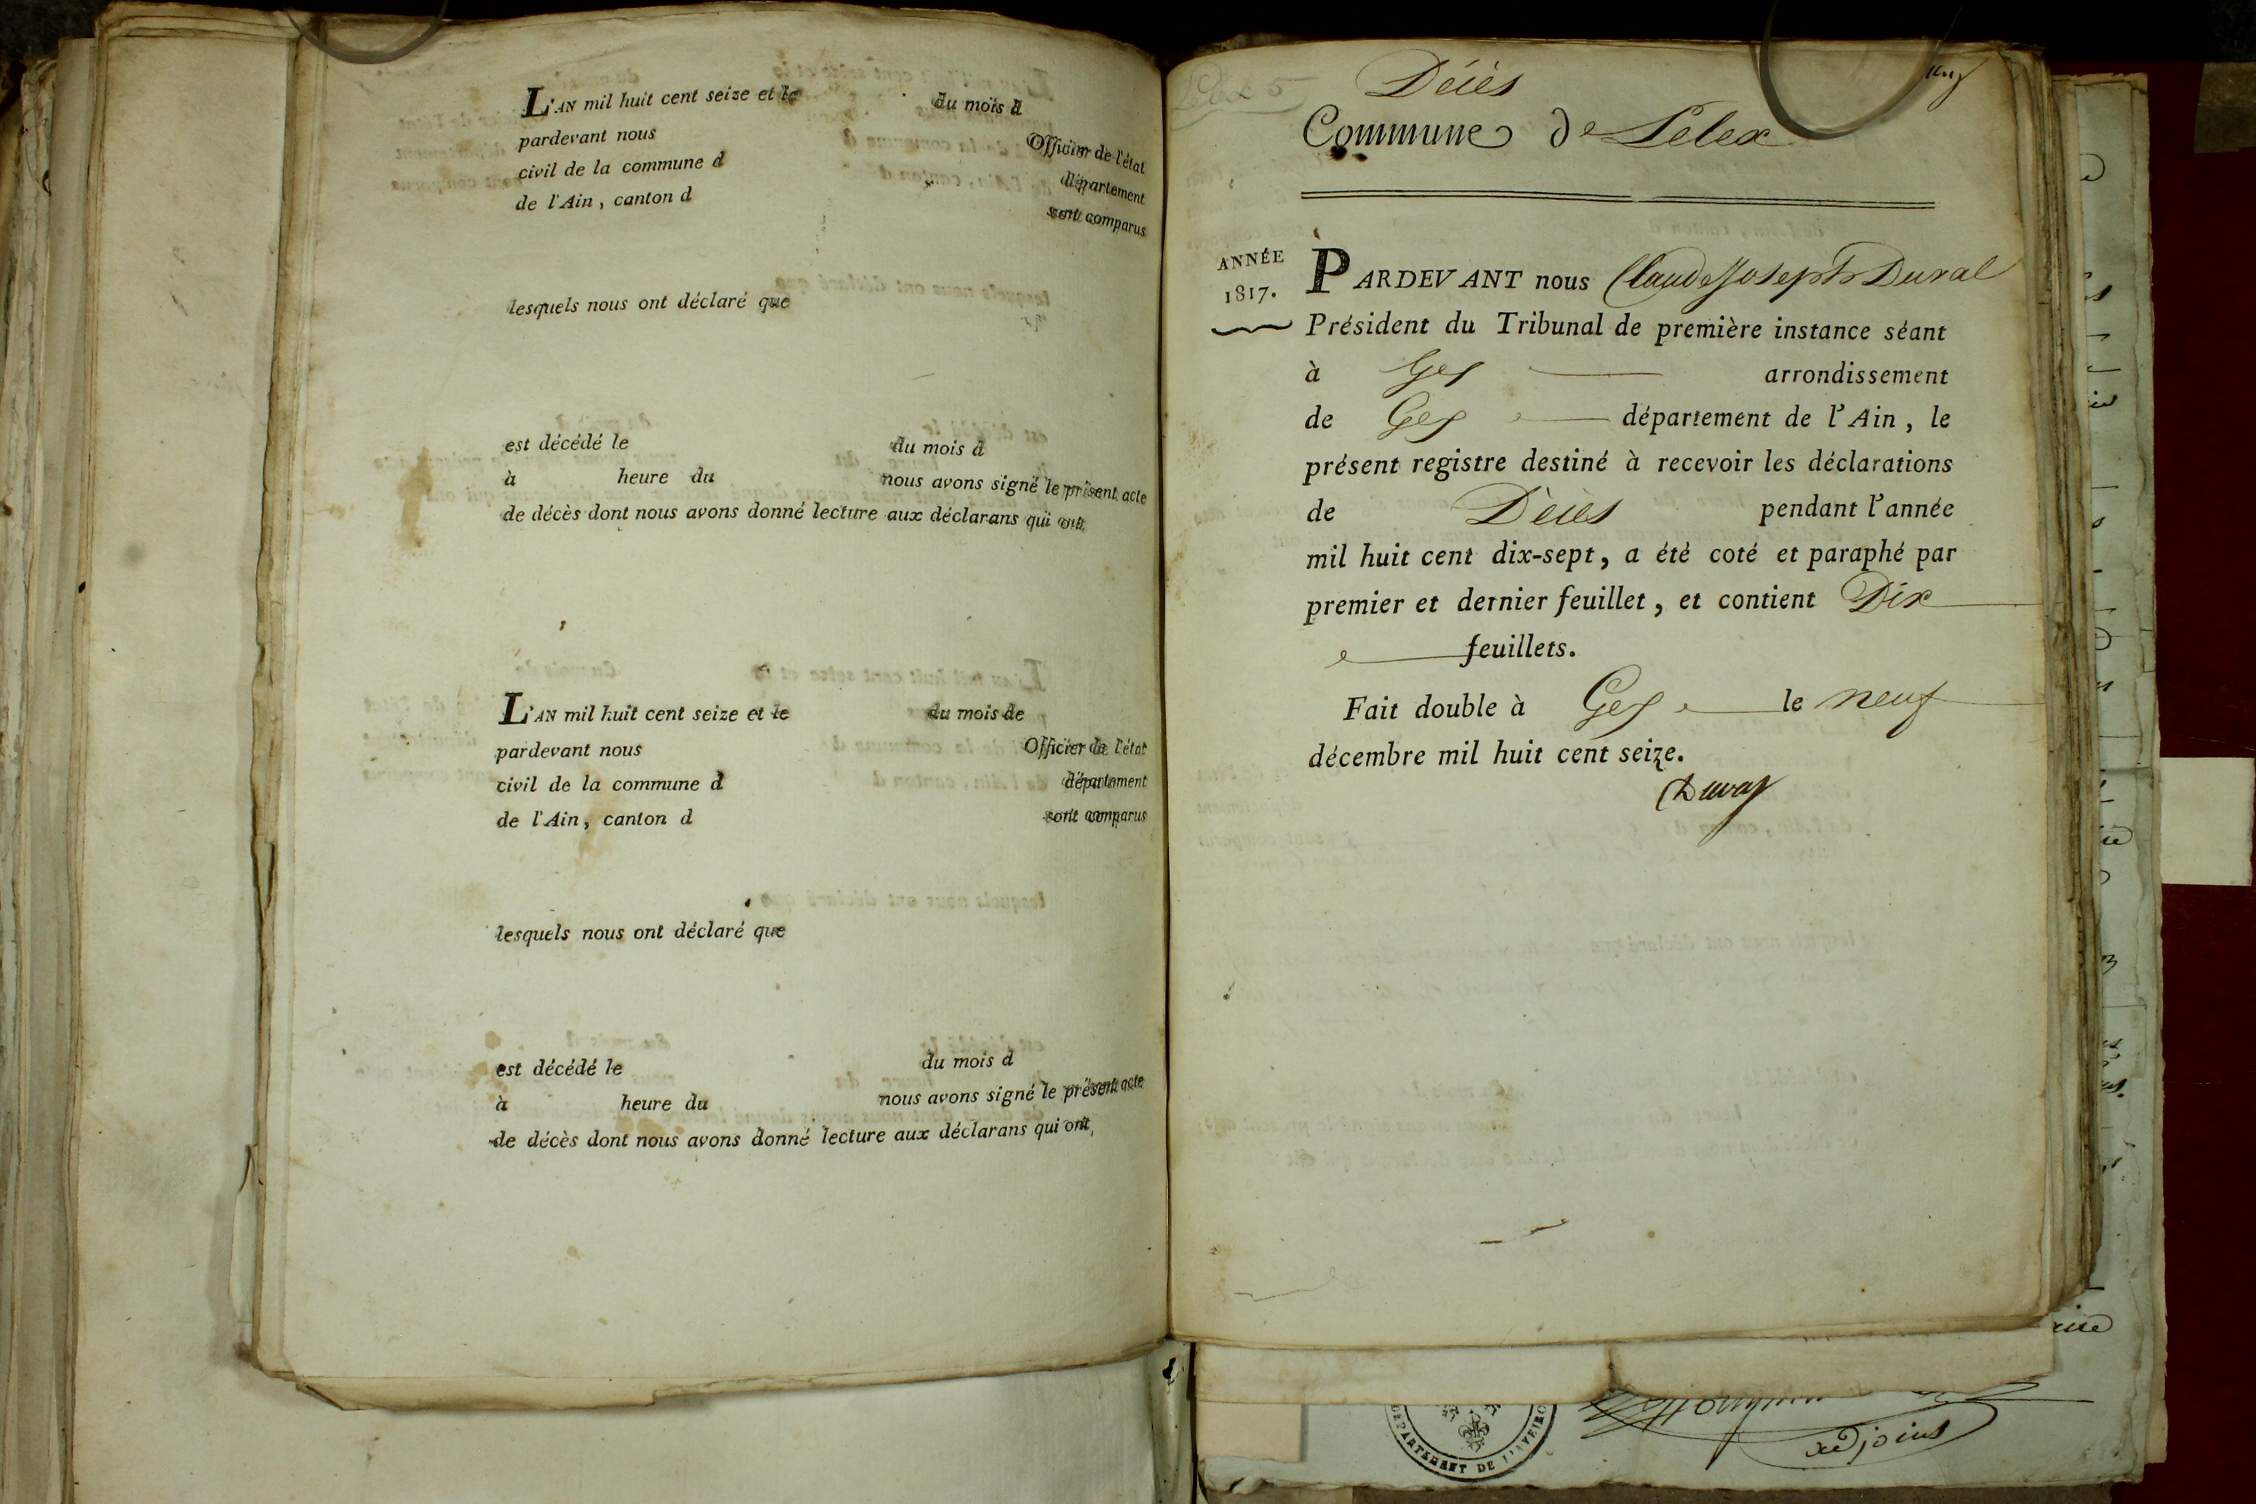 L'AN mil huit cent seize et le du mois d
pardevant nous Officier de l'état
civil de la commune d département
de l'Ain, canton d sont comparus
lesquels nous ont déclaré que
est décédé le du mois d
à heure du nous avons signé le présent acte
de décès dont nous avons donné lecture aux déclarans qui ont
L'AN mil huit cent seize et le du mois de
pardevant nous Officier de l'état
civil de la commune d département
de l'Ain, canton d sont comparus
lesquels nous ont déclaré que
est décédé le du mois d
à heure du nous avons signé le présent acte
de décès dont nous avons donné lecture aux déclarans qui ont
Décès
Commune de Lelex
ANNÉE
1817.
PARDEVANT nous Claude Joseph Duval
Président du Tribunal de première instance séant
à Gex arrondissement
de Gex département de l'Ain, le
présent registre destiné à recevoir les déclarations
de Décès pendant l'année
mil huit cent dix-sept, a été coté et paraphé par
premier et dernier feuillet, et contient Dix
feuillets.
Fait double à Gex le neuf
décembre mil huit cent seize.
Duval
DÉPARTEMENT DE
adjoint